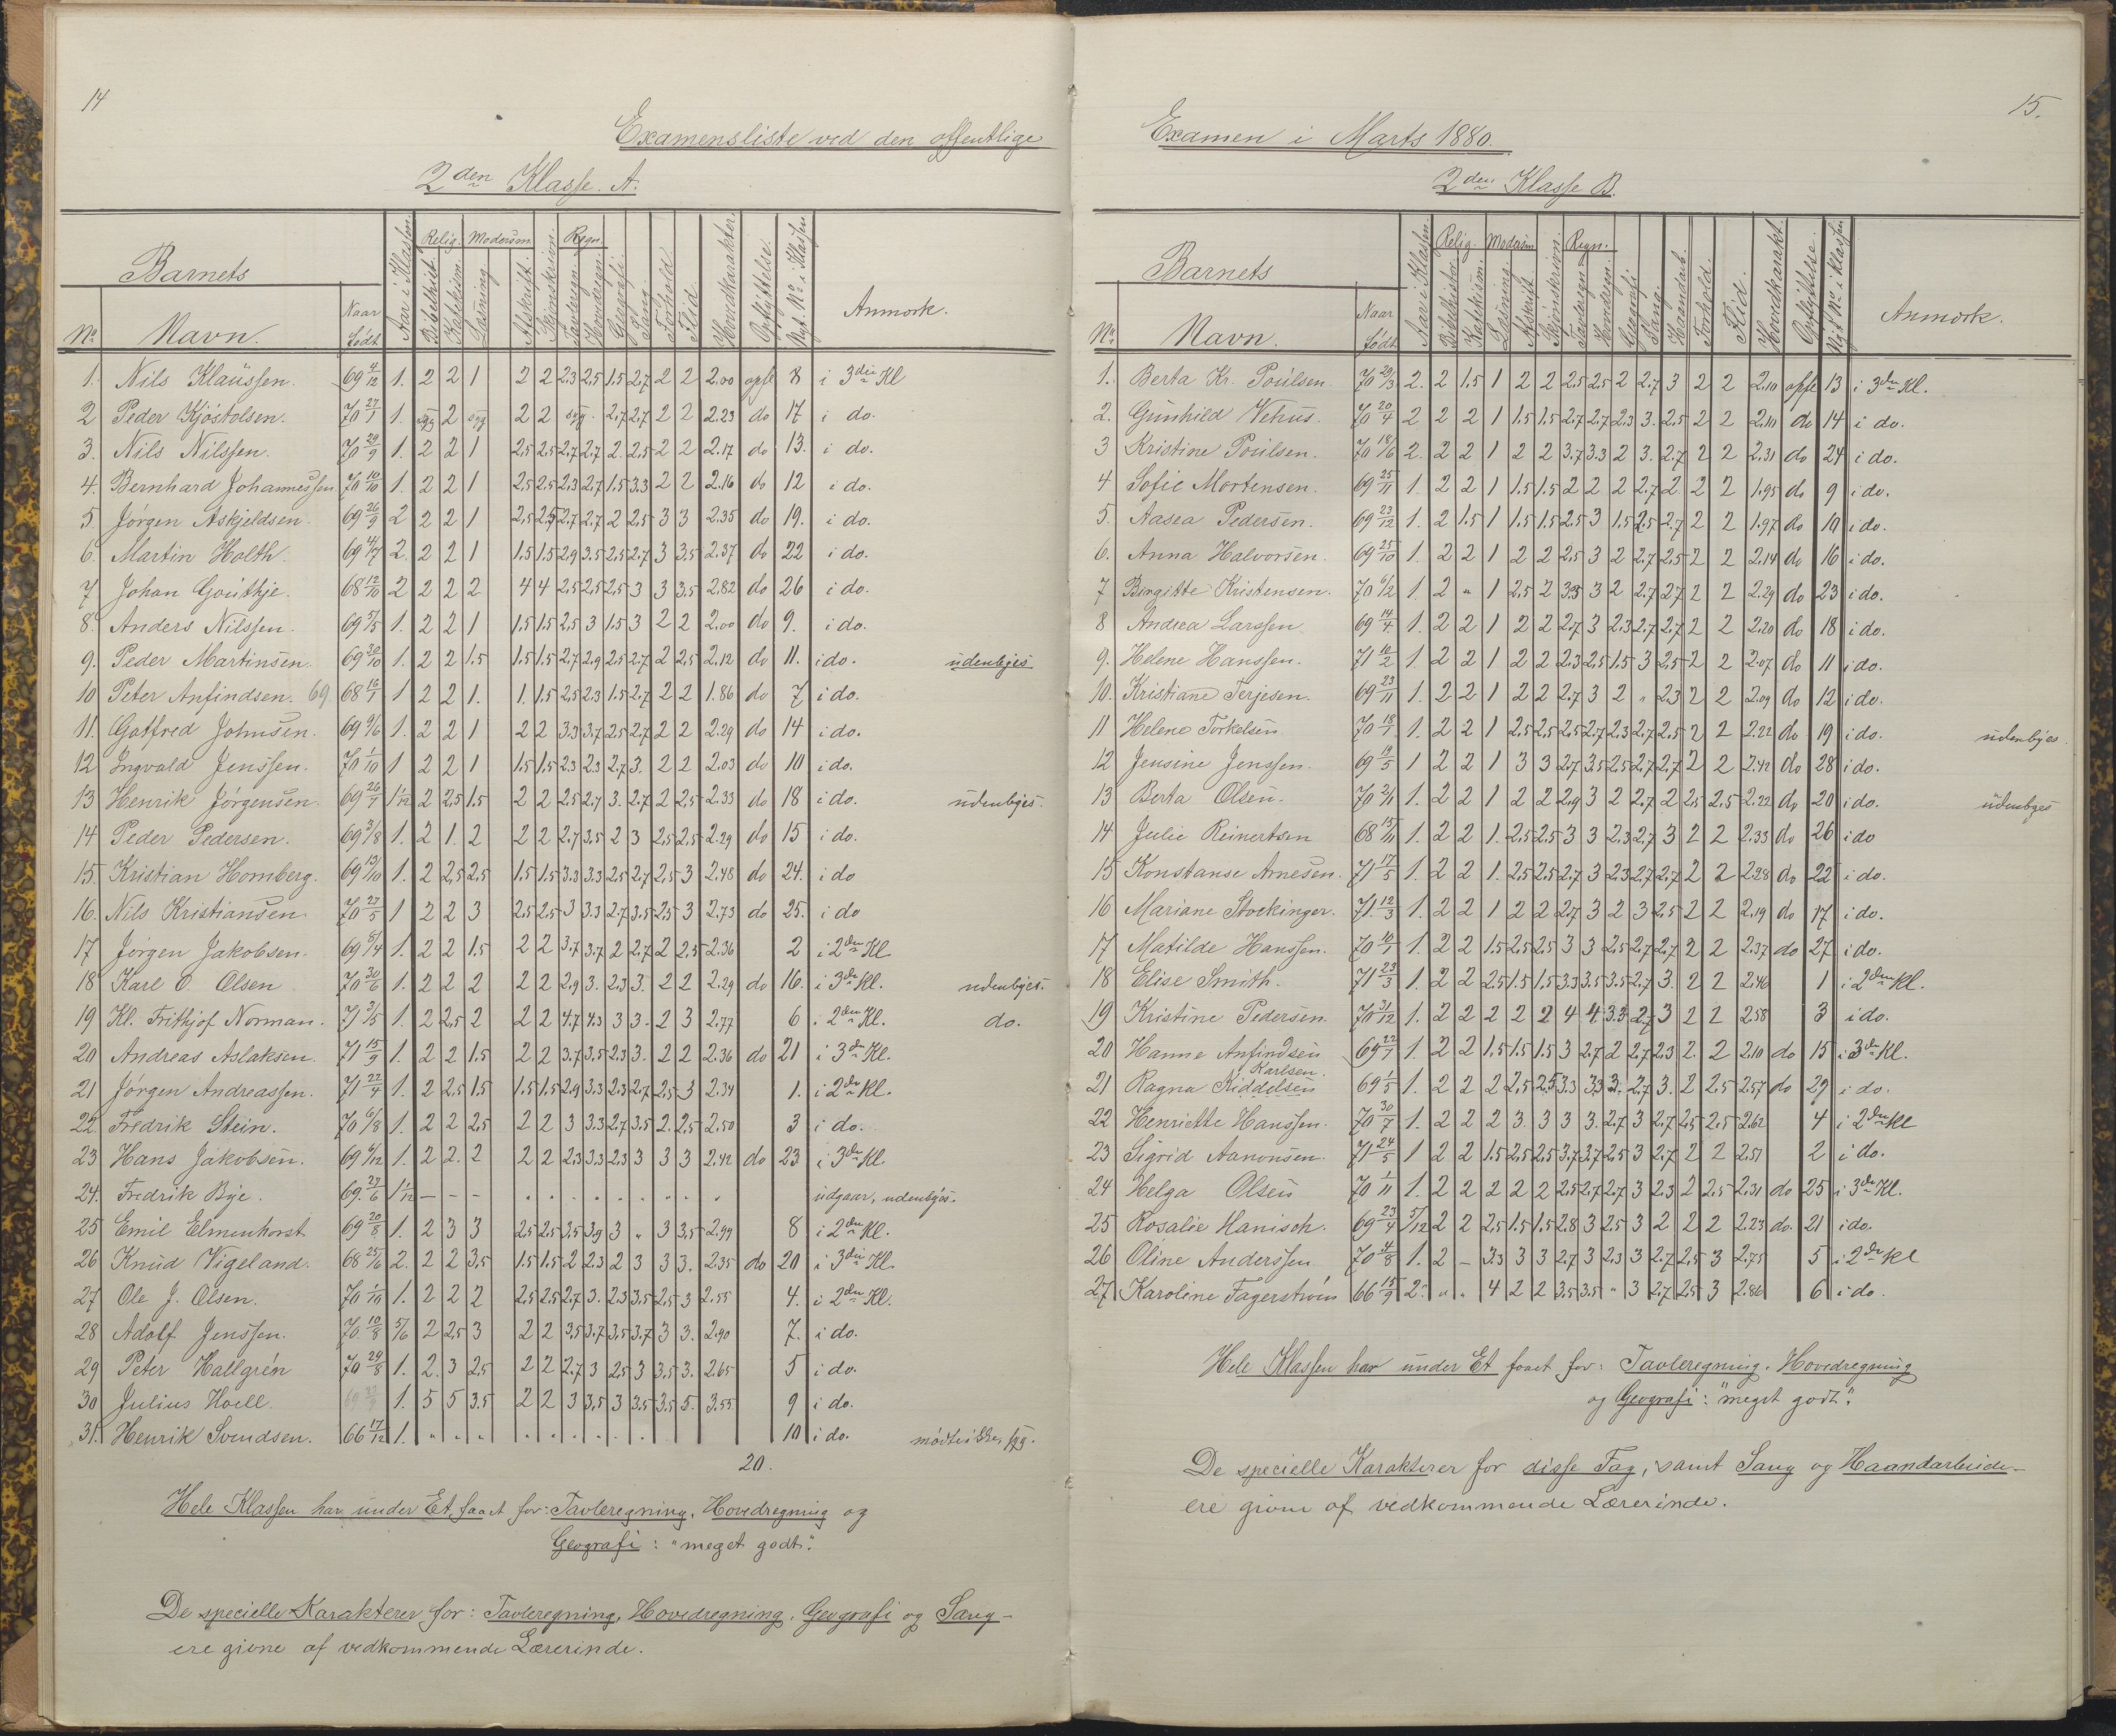 14
Examensliste ved den offentlige
2den Klasse. A.
Barnets
Relig. Modersm. Regn.
No Navn. Naar født Aar i Klassen. Bibelhist. Katekism. Læsning Afskrift. Skjønskrivn. Tavleregn. Hovedregn. Geografi. Sang. Forhold. Flid. Hovedkarakter. Opflyttelse. Nyt No i Klassen Anmærk.
1. Nils Klaussen. 69 4/12 1. 2 2 1 2 2 2.3 2.5 1.5 2.7 2 2 2.00 opfl 8 i 3die Kl
2 Peder Kjöstolsen. 70 27/1 1. syg 2 syg 2 2 syg. 2.7 2.7 2 2 2.23 do 17 i do.
3. Nils Nilssen. 70 29/9 1. 2 2 1 2,5 2.5 2.7 2.7 2. 2.5 2 2 2.17 do 13. i do.
4. Bernhard Johannessen 70 10/10 1. 2 2 1 2.5 2.5 2.3 2.7 1.5 3.3 2 2 2.16 do 12 i do.
5. Jörgen Askjeldsen. 69 26/9 2 2 2 1 2,5 2.5 2.7 2.7 2 2,5 3 3 2.35 do 19. i do.
6. Martin Holth. 69 4/7 2. 2 2 1 1.5 1.5 2.9 3.5 2.5 2.7 3 3.5 2.37 do 22 i do.
7 Johan Gouthje. 68 12/10 2 2 2 2 4 4 2.5 2.5 2.5 3 3 3.5 2.82 do 26 i do.
8. Anders Nilssen. 69 5/5 1. 2 2 1 1.5 1.5 2.5 3 1.5 3 2 2 2.00 do 9. i do.
9. Peder Martinsen. 69 30/10 1. 2 2 1.5 1.5 1.5 2.7 2.9 2.5 2.7 2 2.5 2.12 do 11. i do. udenbyes
10 Peter Anfindsen. 69 68 16/1 1 2 2 1. 1. 1.5 2.5 2.3 1.5 2.7 2 2 1.86 do 7 i do.
11. Gotfred Johnsen. 69 9/6 1. 2 2 1 2 2 3.3 3.7 2.5 2.7 2 2 2.29 do 14 i do.
12 Ingvald Jenssen. 70 1/10 1 2 2 1 1.5 1.5 2.3 2.3 2.7 3. 2 2 2.03 do 10 i do.
13 Henrik Jörgensen. 69 26/7 1 1/12 2 2.5 1.5 2 2 2.5 2.7 3. 2.7 2 2.5 2.33 do 18 i do. udenbyes.
14 Peder Pedersen. 69 3/8 1. 2 1. 2 2 2 2.7 3.5 2 3 2.5 2.5 2.29 do 15 i do.
15. Kristian Homberg. 69 13/10 1. 2 2,5 2,5 1.5 1.5 3.3 3.3 2.5 2.7 2,5 3 2.48 do 24. i do
16. Nils Kristiansen 70 27/5 1 2 2 3 2.5 2.5 3 3.3 2.7 3.5 2.5 3 2.73 do 25. i do
17 Jörgen Jakobsen. 69 5/4 1. 2 2 1.5 2 2 3.7 3.7 2 2.7 2 2.5 2.36 2 i 2den Kl
18 Karl O. Olsen 70 30/6 1. 2 2 2 2 2 2.9 3. 2.3 3. 2 2 2.29 do 16. i 3die Kl. udenbyes.
19 Kl. Frithjof Norman. 71 3/5 1. 2 2,5 2 2 2 4.7 4.3 3 3. 2 3 2.77 6 i 2den Kl. do.
20 Andreas Aslaksen. 71 15/9 1. 2 2 1.5 2 2 3.7 3.5 2.3 3. 2 2 2.36 do 21 i 3die Kl.
21 Jörgen Andreassen. 71 22/4 1. 2 2.5 1.5 1.5 1.5 2.9 3.3 2.3 2.7 2.5 3 2.34 1. i 2den Kl.
22 Fredrik Stein. 70 6/8 1. 2 2 2.5 2 2 3 3.3 2.7 3.5 2. 2.5 2.50 3 i do.
23 Hans Jakobsen. 69 6/12 1. 2 2. 2 2 2 2.3 3.3 2.3 3 3 3 2.42 do 23 i 3die Kl.
24. Fredrik Bye. 69. 27/6 1 1/12 — — — udgaar, udenbyes.
25 Emil Elmenhorst 69 20/8 1. 2 3 3 2.5 2.5 3.5 3.9 3 " 3 3.5 2.99 8 i 2den Kl.
26 Knud Vigeland. 68 25/6 2. 2 2 3.5 1.5 1.5 2 2.3 2 3 3 3. 2.35 do 20 i 3die Kl.
27 Ole J. Olsen. 70 1/10 1. 2 2 2 2.5 2.5 2.7 3. 2.3 3.5 2.5 3 2.55 4. i 2den Kl.
28 Adolf Jenssen. 70 10/8 5/6 2 2.5 3 2 2 3.5 3.7 3.5 3.7 3 3. 2.90 7. i do.
29 Peter Hallgrén 70 29/8 1. 2. 3 2.5 2 2 2.7 3 2.5 3 3.5 3. 2.65 5 i do.
30 Julius Hoell. 1. 5 5 3.5 2 2 3 3.5 3 3.5 3.5 5. 3.55 9 i do.
31. Henrik Svendsen. 66 17/12 1. " " " 10 i do. mödte ikke, syg.
20.
Hele Klassen har under Et faaet for: Tavleregning, Hovedregning og
Geografi: "meget godt".
De specielle Karakterer for: Tavleregning, Hovedregning, Geografi og Sang
ere givne af vedkommende Lærerinde.
15.
Examen i Marts 1880.
2den Klasse B.
Barnets
Relig. Modersm Regn.
No Navn. Naar født Aar i Klassen. Bibelhistor. Katekism. Læsning. Afskrift. Skjönskrivn. Tavleregn. Hovedregn. Geografi. Sang. Haandarb. Forhold. Flid. Hovedkarakt. Opflyttelse. Nyt No i Klassen Anmærk.
1. Berta Kr. Poulsen. 70 29/3 2. 2 1.5 1 2 2 2.5 2.5 2 2.7 3 2 2 2.10 opfl 13 i 3die Kl.
2. Gunhild Vehus. 70 20/4 2 2 2 1 1.5 1.5 2.7 2.7 2.3 3. 2.5 2 2 2.10 do 14 i do.
3 Kristine Poulsen. 70 18/6 2. 2 2 1 2 2 3.7 3.3 2 3. 2.7 2 2 2.31 do 24 i do.
4 Sofie Mortensen. 69 25/11 1. 2 2 1 1.5 1.5 2 2 2 2.7 2 2 2 1.95 do 9 i do.
5. Aasea Pedersen. 69 23/12 1. 2 1.5 1 1.5 1.5 2.5 3 1.5 2.5 2.7 2 2 1.97 do 10 i do.
6. Anna Halvorsen. 69 25/10 1. 2 2 1 2 2 2.5 3 2 2.7 2.5 2 2 2.14 do 16 i do.
7 Birgitte Kristensen. 70 6/2 1. 2 " 1 2.5 2 3.3 3 2 2.7 2.7 2 2 2.29 do 23 i do.
8 Andrea Larssen 69 14/4 1. 2 2 1 2 2 2.7 3 2.3 2.7 2.7 2 2 2.20 do 18 i do.
9. Helene Hanssen. 71 10/2 1. 2 2 1 2 2 2.3 2.5 1.5 3 2.5 2 2 2.07 do 11 i do.
10. Kristiane Terjesen. 69 23/11 1. 2 2 1 2 2 2.7 3 2 " 2.3 2 2 2.09 do 12 i do.
11 Helene Torkelsen 70 18/1 1. 2 2 1 2.5 2.5 2.5 2.7 2.3 2.7 2.5 2 2 2.22 do 19 i do. udenbyes.
12 Jensine Jenssen. 69 19/5 1 2 2 1 3 3 2.7 3.5 2.5 2.7 2.7 2 2 2.42 do 28 i do.
13 Berta Olsen. 70 2/11 1. 2 2 1 2 2 2.9 3 2 2.7 2 2.5 2.5 2.22 do 20 i do. udenbyes
14 Julie Reinertsen 68 15/11 1. 2 2 1. 2.5 2.5 3 3 2.3 2.7 3 2 2 2.33 do 26 i do
15 Konstanse Arnesen. 71 17/5 1. 2 2 1. 2.5 2.5 2.7 3 2.3 2.7 2.7 2 2 2.28 do 22 i do.
16 Mariane Stockinger. 71. 12/3 1. 2 2 1 2 2 2.7 3 2 3 2.5 2 2 2.19 do 17 i do.
17 Matilde Hanssen. 70 10/1 1. 2 2 1.5 2.5 2.5 3 3 2.5 2.7 2.7 2 2 2.37 do 27 i do.
18 Elise Smith. 71 23/3 1. 2 2 2.5 1.5 1.5 3.3 3.5 3.5 2.7 3. 2 2 2.46 1 i 2den Kl.
19 Kristine Pedersen. 70 31/12 1. 2 2 2 2 2 4 4 3.3 2.7 3 2 2 2.58 3 i do.
20 Hanne Anfindsen 69 22/7 1. 2 2 1.5 1.5 1.5 3 2.7 2 2.7 2.3 2. 2 2.10 do 15 i 3die Kl.
Karlsen.
21 Ragna Kiddelsen 69 1/5 1. 2 2 2 2.5 2.5 3.3 3.3 3. 2.7 3. 2 2.5 2.57 do 29 i do.
22 Henriette Hanssen. 70 30/7 1. 2 2 2 3. 3 3 3. 2.7 3 2.7 2.5 2.5 2.62 4 i 2den Kl
23 Sigrid Aanonsen. 71 24/5 1 2 2 1.5 2.5 2.5 3.7 3.7 2.5 3 2.7 2 2 2.51 2 i do.
24 Helga Olsen 70 1/11 1. 2 2 2 2 2 2.5 2.7 2.7 3 2.3 2 2.5 2.31 do 25 i 3die Kl.
25 Rosalie Hanisch. 69 23/4 5/12 2 2 2.5 1.5 1.5 2.8 3 2.5 3 2 2 2 2.23 do. 21 i do.
26 Oline Anderssen 70 14/8 1. 2 — 3.3 3 3 2.7 3 2.3 3 2.7 2.5 3 2.75 5 i 2den Kl
27 Karoline Fagerström 66 15/9 2. " " 4 2 2 3.5 3.5 " 3 2.7 2.5 3 2.86 6 i do.
Hele Klassen har under Et faaet for: Tavleregning, Hovedregning
og Geografi: "meget godt".
De specielle Karakterer for disse Fag, samt Sang og Haandarbeide
ere givne af vedkommende Lærerinde.